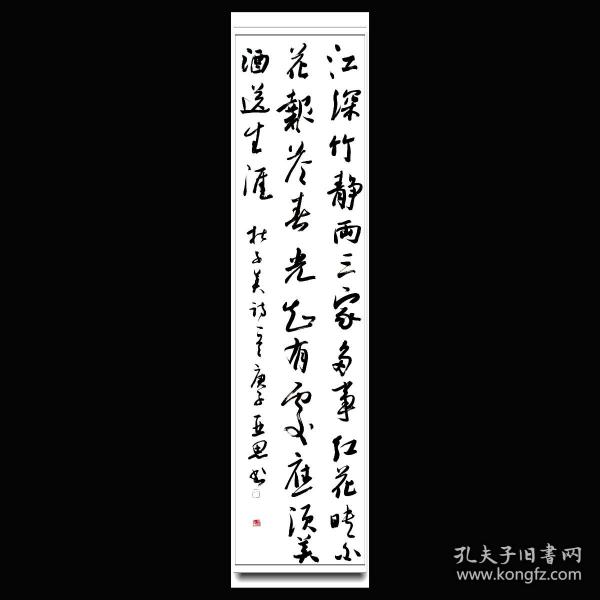 江深竹靜兩三家多事红花映白
花報答春光知有處應須美
酒送生涯 杜子美诗一首 庚子亚思书
孔夫子旧書网
www.kongfz.com